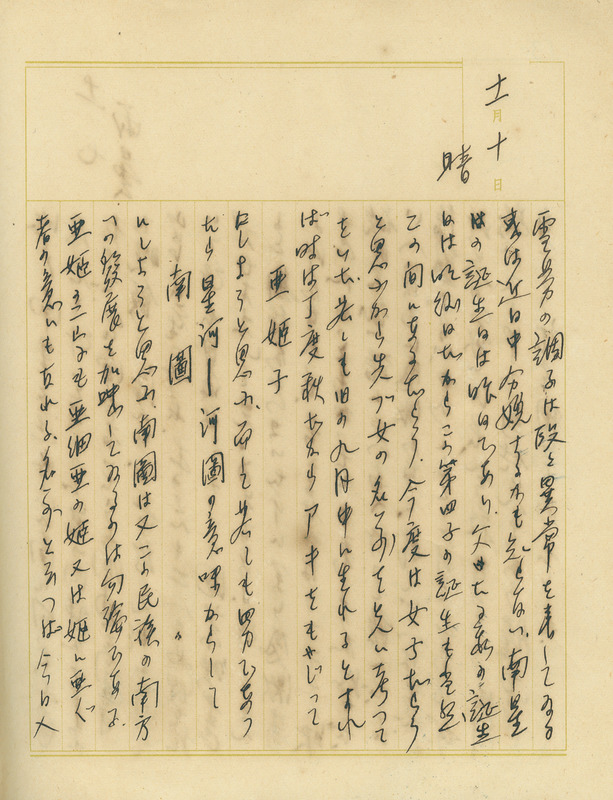 十一月十日
晴
雲英の調子は段々異常を表して居る
或は近日中分娩するかも知らない、南星
の誕生日は昨日であり、父である私の誕生
日は明後日だからこの第四子の誕生も
この間にあるだらう、今度は女子だらう
と思ふから先づ女の名前を先に考へて
をいた、若しも旧の九月中に生れるとすれ
ば時は丁度秋だからアキをもじって
亜姫子
にしようと思ふ、而して若しも男であっ
たら星河―河圖の意味からして
南圖
にしようと思ふ、南圖は又この民族の南方
への發展を加味して居るのは勿論である。
亜姫と云ふも亜細亜の姫又は姫に亜ぐ
者の意にもなれる、名前と云へば今日入